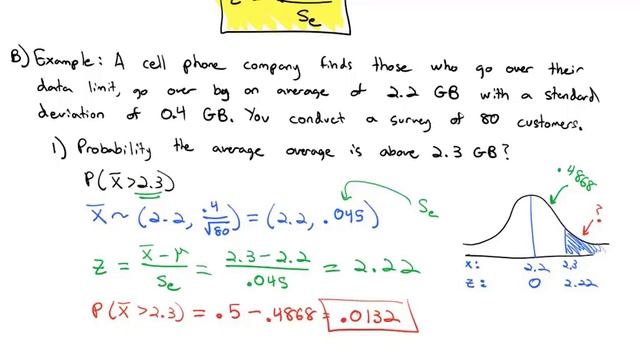 Se
B) Example: A cell phone company finds those who go over their
data limit, go over by on average of 2.2 GB with a standard
deviation of 0.4 GB. You conduct a survey of 80 customers.
1) Probability the average overage is above 2.3 GB?
P(x̄>2.3)
x̄~(2.2, .4/√80) = (2.2, .045) Se
z = x̄-μ/Se = 2.3-2.2/.045 = 2.22
P(x̄>2.3) = .5-.4868 = .0132
.4868
?
x: 2.2 2.3
z: 0 2.22